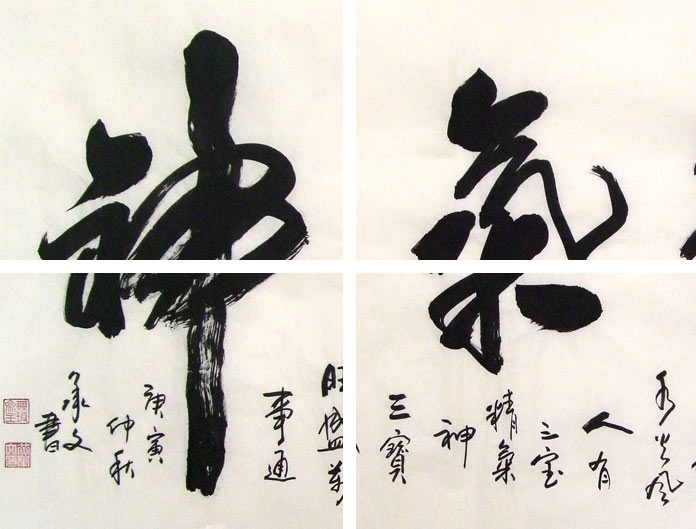 氣神
水火风
人有
三宝
精氣
神
三寶
旺盛
事通
庚寅
仲秋
承文
書